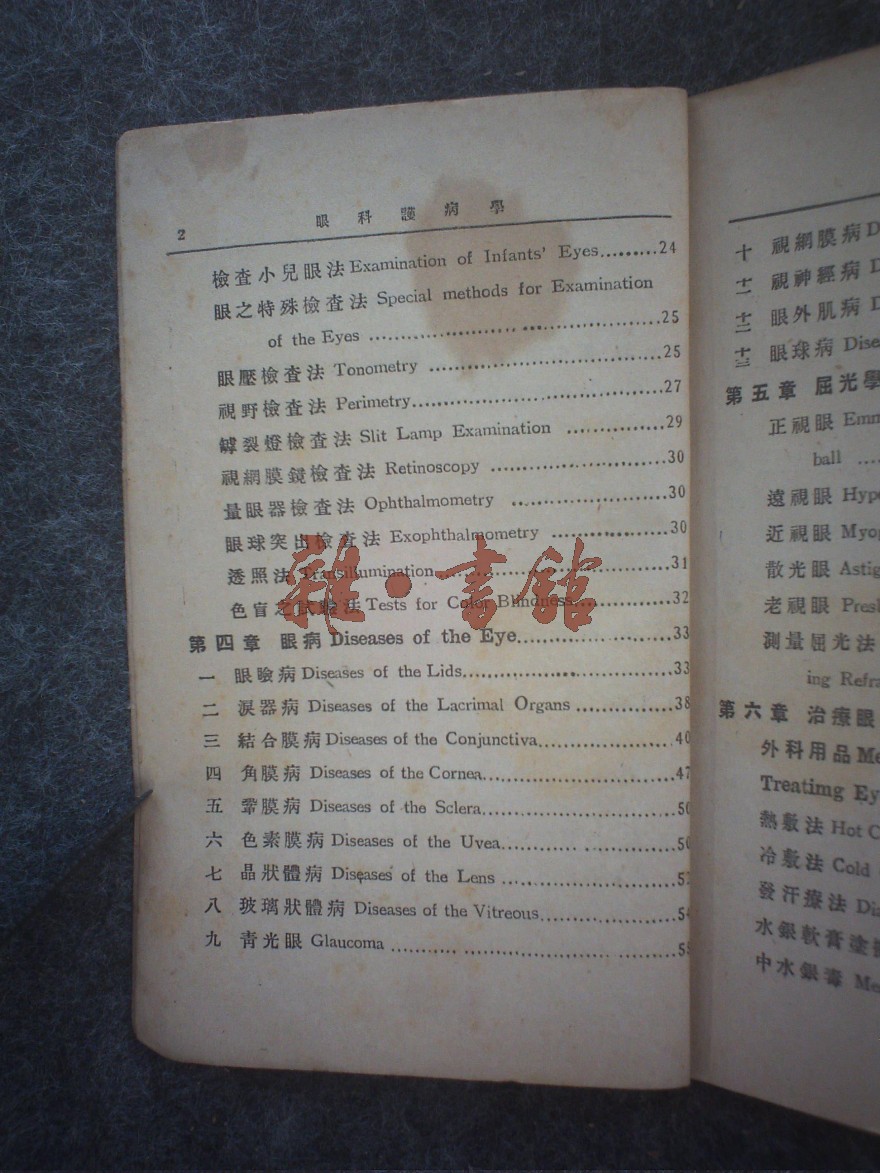 2 眼科護病學
檢查小兒眼法 Examination of Infants' Eyes.........24
眼之特殊檢查法 Special methods for Examination
of the Eyes ........................................25
眼壓檢查法 Tonometry ..............................25
視野檢查法 Perimetry..............................27
罅裂燈檢查法 Slit Lamp Examination ..............29
視網膜鏡檢查法 Retinoscopy ......................30
量眼器檢查法 Ophthalmometry ....................30
眼球突出檢查法 Exophthalmometry ................30
透照法 Transillumination..........................31
色盲之試驗法 Tests for Color Blindness............32
第四章 眼病 Diseases of the Eye....................33
一 眼瞼病 Diseases of the Lids......................33
二 淚器病 Diseases of the Lacrimal Organs ..........38
三 結合膜病 Diseases of the Conjunctiva.............40
四 角膜病 Diseases of the Cornea....................47
五 鞏膜病 Diseases of the Sclera....................50
六 色素膜病 Diseases of the Uvea....................50
七 晶狀體病 Diseases of the Lens ...................
八 玻璃狀體病 Diseases of the Vitreous..............54
九 靑光眼 Glaucoma ................................55
雜·書館
十 視網膜病 D
十一 視神經病 D
十二 眼外肌病 D
十三 眼球病 Dise
第五章 屈光學
正視眼 Emm
ball ....
遠視眼 Hype
近視眼 Myo
散光眼 Astig
老視眼 Presb
測量屈光法
ing Refra
第六章 治療眼
外科用品 Me
Treatimg Ey
熱敷法 Hot C
冷敷法 Cold
發汗療法 Dia
水銀軟膏塗
中水銀毒 Me